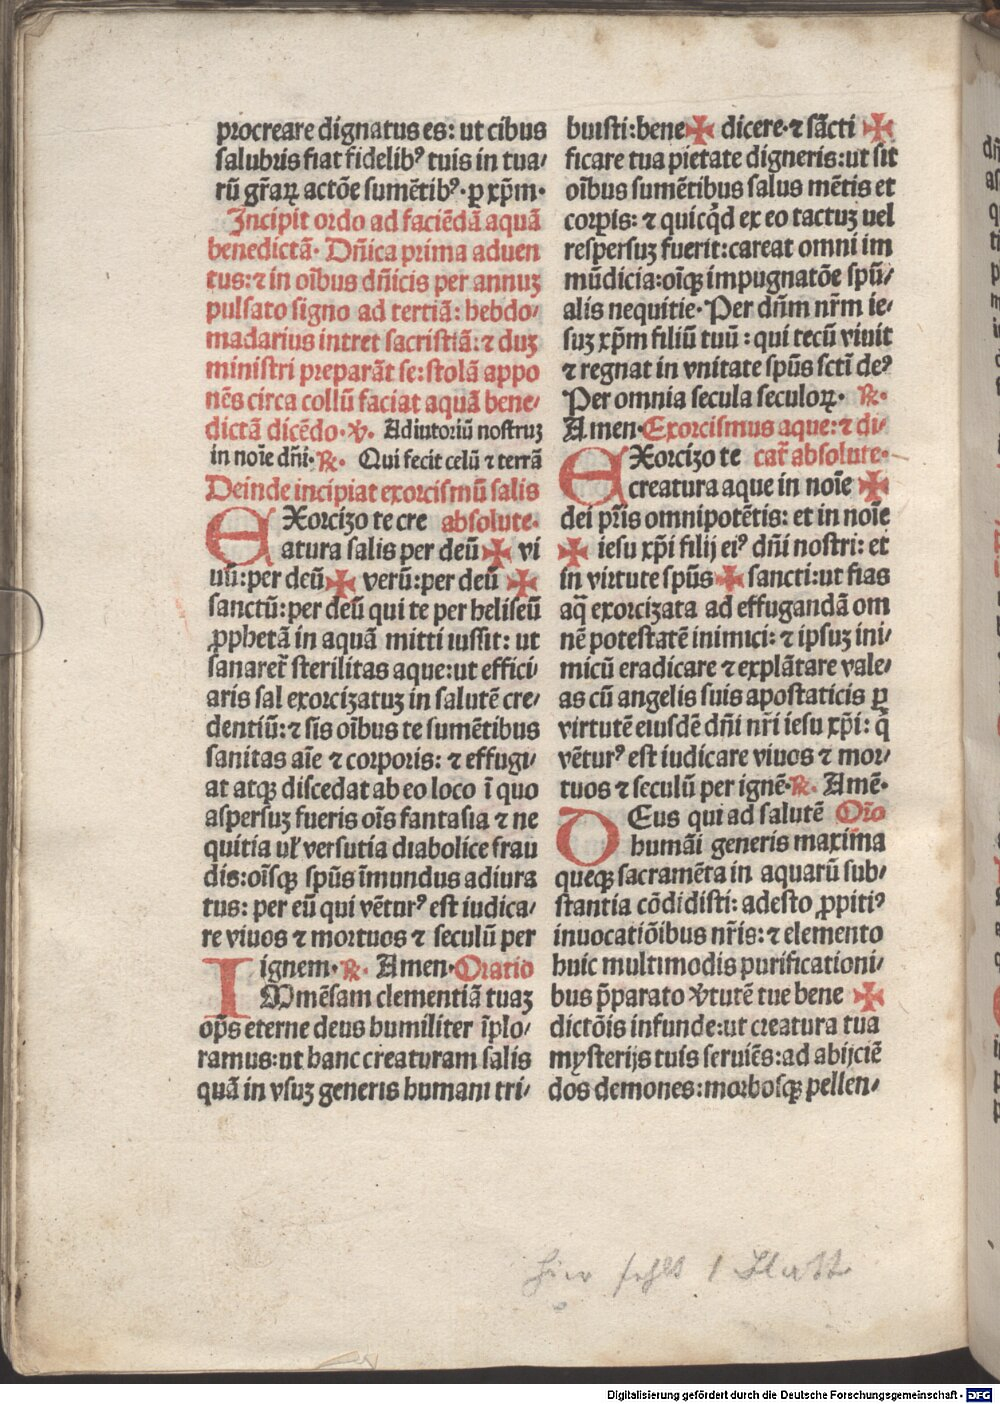 procreare dignatus es: ut cibus
salubris fiat fidelibꝰ tuis in tua/
rū gr̄aꝝ actōe sumētibꝰ· ꝑ xp̄m·
Incipit ordo ad faciēdā aquā
benedictā· Dn̄ica prima aduen
tus: ⁊ in oībus dn̄icis per annuꝫ
pulsato signo ad tertiā: hebdo/
madarius intret sacristiā: ⁊ duꝫ
ministri preparāt se: stolā appo
nēs circa collū faciat aquā bene/
dictā dicēdo· ℣. Adiutoriū nostruꝫ
in noīe dn̄i· ℟. Qui fecit celū ⁊ terrā
Deinde incipiat exorcismū salis
EXorcizo te cre absolute·
atura salis per deū ✠ vi
uū: per deū ✠ verū: per deū ✠
sanctū: per deū qui te per heliseū
ꝓphetā in aquā mitti iussit: ut
sanaret̄ sterilitas aque: ut effici/
aris sal exorcizatuꝫ in salutē cre/
dentiū: ⁊ sis oībus te sumētibus
sanitas aīe ⁊ corporis: ⁊ effugi/
at atqꝫ discedat ab eo loco ī quo
aspersuꝫ fueris oīs fantasia ⁊ ne
quitia uł versutia diabolice frau
dis: oīsqꝫ spūs īmundus adiura
tus: per eū qui vētur̉ est iudica/
re viuos ⁊ mortuos ⁊ seculū per
ignem· ℟. Amen· Oratio
IMmēsam clementiā tuaꝫ
op̄s eterne deus humiliter īplo/
ramus: ut hanc creaturam salis
quā in vsuꝫ generis humani tri/
buisti: bene ✠ dicere· ⁊ sācti ✠
ficare tua pietate digneris: ut sit
oībus sumētibus salus mētis et
corꝑis: ⁊ quicq̄d ex eo tactuꝫ uel
respersuꝫ fuerit: careat omni im
mūdicia: oīqꝫ impugnatōe spū/
alis nequitie· Per dn̄m nr̄m ie/
suꝫ xp̄m filiū tuū: qui tecū viuit
⁊ regnat in vnitate spūs sctī deꝰ
Per omnia secula seculoꝝ· ℟.
Amen· Exorcismus aque: ⁊ di/
EXorcizo te cat̄ absolute·
creatura aque in noīe ✠
dei pr̄is omnipotētis: et in noīe
✠ iesu xp̄i filij eiꝰ dn̄i nostri: et
in virtute spūs ✠ sancti: ut fias
aq̄ exorcizata ad effugandā om
nē potestatē inimici: ⁊ ipsuꝫ ini/
micū eradicare ⁊ explātare vale/
as cū angelis suis apostaticis ꝑ
virtutē eiusdē dn̄i nr̄i iesu xp̄i: q̄
vēturꝰ est iudicare viuos ⁊ mor/
tuos ⁊ seculū per ignē· ℟. Amē·
DEus qui ad salutē Or̄o
humāi generis maxima
queqꝫ sacramēta in aquarū sub/
stantia cōdidisti: adesto ꝓpitiꝰ
inuocatiōibus nr̄is: ⁊ elemento
huic multimodis purificationi/
bus p̄parato ℣tutē tue bene ✠
dictōis infunde: ut creatura tua
mysterijs tuis seruiēs: ad abijciē
dos demones: morbosqꝫ pellen/
Hier fehlt 1 Blatt
Digitalisierung gefördert durch die Deutsche Forschungsgemeinschaft - DFG